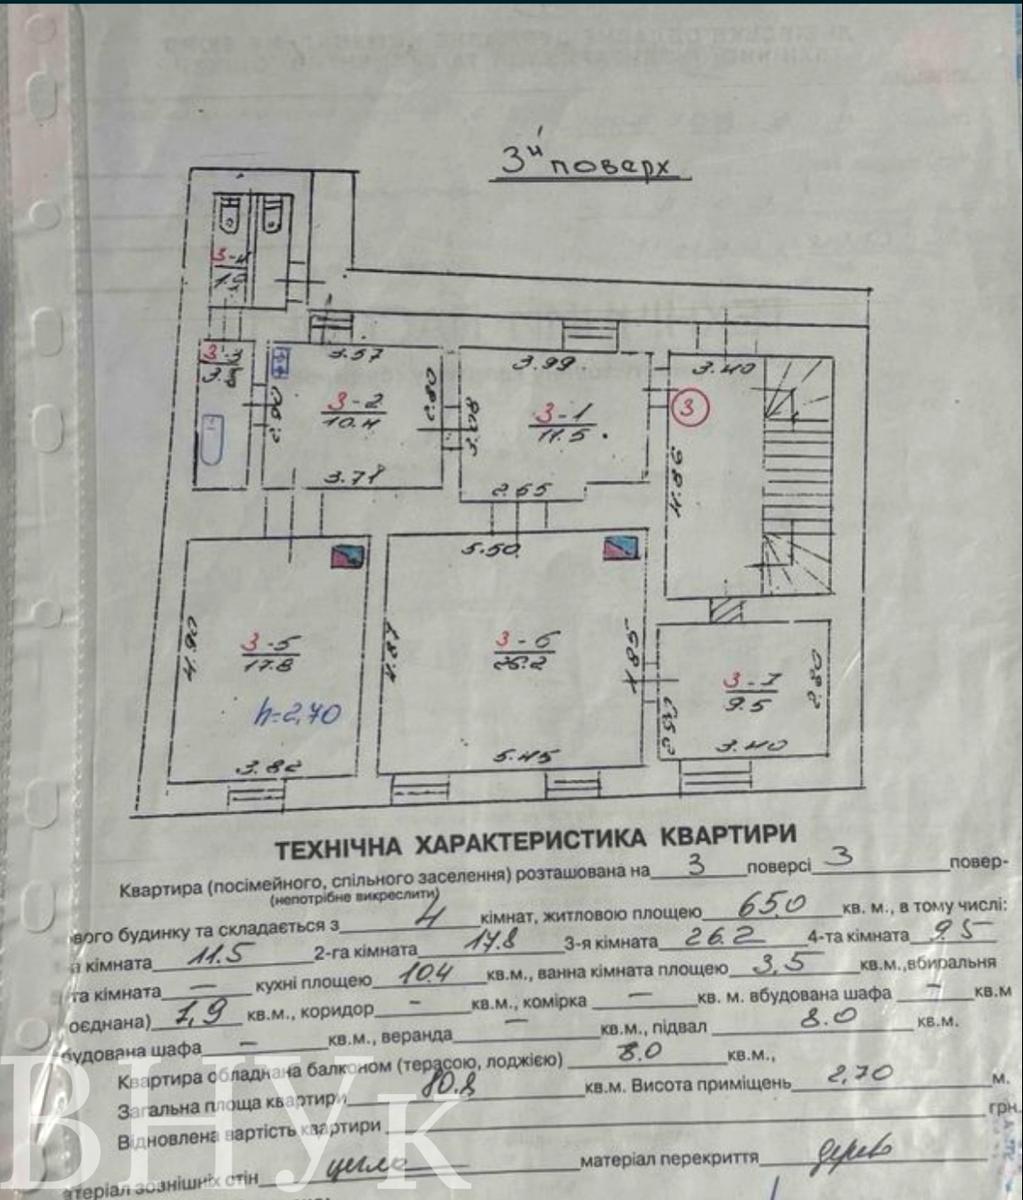 3й поверх
3-4
1.9
3-3
3.57
3.99
3.40
3-2
10.4
2.90
2.80
3.08
3-1
11.5
3
4.86
3.71
2.65
5.50
4.90
3-5
17.8
h=2,70
4.84
3-6
26.2
4.85
3-7
9.5
2.80
3.82
5.45
3.40
ТЕХНІЧНА ХАРАКТЕРИСТИКА КВАРТИРИ
Квартира (посімейного, спільного заселення) розташована на 3 поверсі 3 повер-
(непотрібне викреслити)
вого будинку та складається з 4 кімнат, житловою площею 65.0 кв. м., в тому числі:
а кімната 11.5 2-га кімната 17.8 3-я кімната 26.2 4-та кімната 9.5
та кімната — кухні площею 10.4 кв.м., ванна кімната площею 3,5 кв.м.,вбиральня
оєднана) 1,9 кв.м., коридор - кв.м., комірка — кв. м. вбудована шафа - кв.м
будована шафа — кв.м., веранда — кв.м., підвал 8.0 кв.м.
Квартира обладнана балконом (терасою, лоджією) 8.0 кв.м.,
Загальна площа квартири 80.8 кв.м. Висота приміщень 2,70 м.
Відновлена вартість квартири грн.
атеріал зовнішніх стін цегла матеріал перекриття дерево
ВНУК